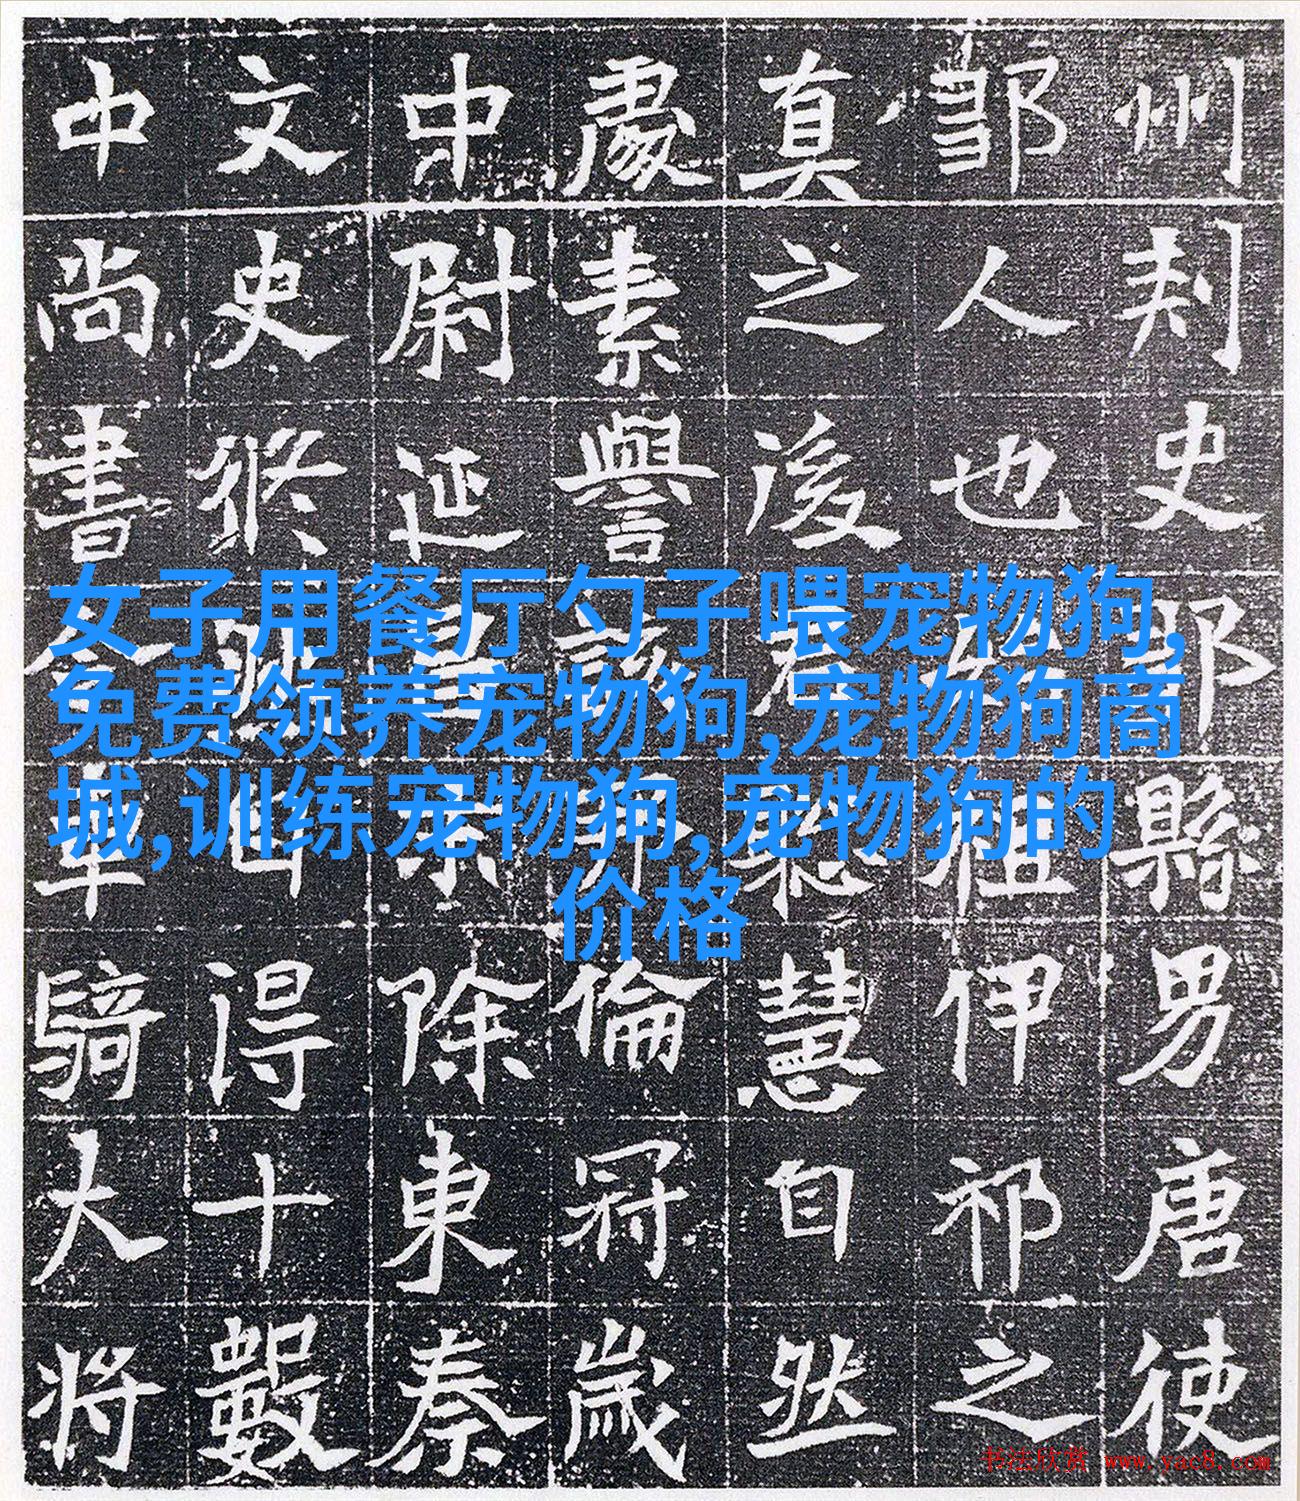 州刾史鄒縣男唐使
鄒人也
伊祁之
真之後
慧自然
處素譽
倫冠歲
中尉延
除東秦
文史
得十數
中尚書令
騎大將
女子用餐厅勺子喂宠物狗,
免费领养宠物狗,宠物狗商
城,训练宠物狗,宠物狗的
价格
书法欣赏 www.yac8.com